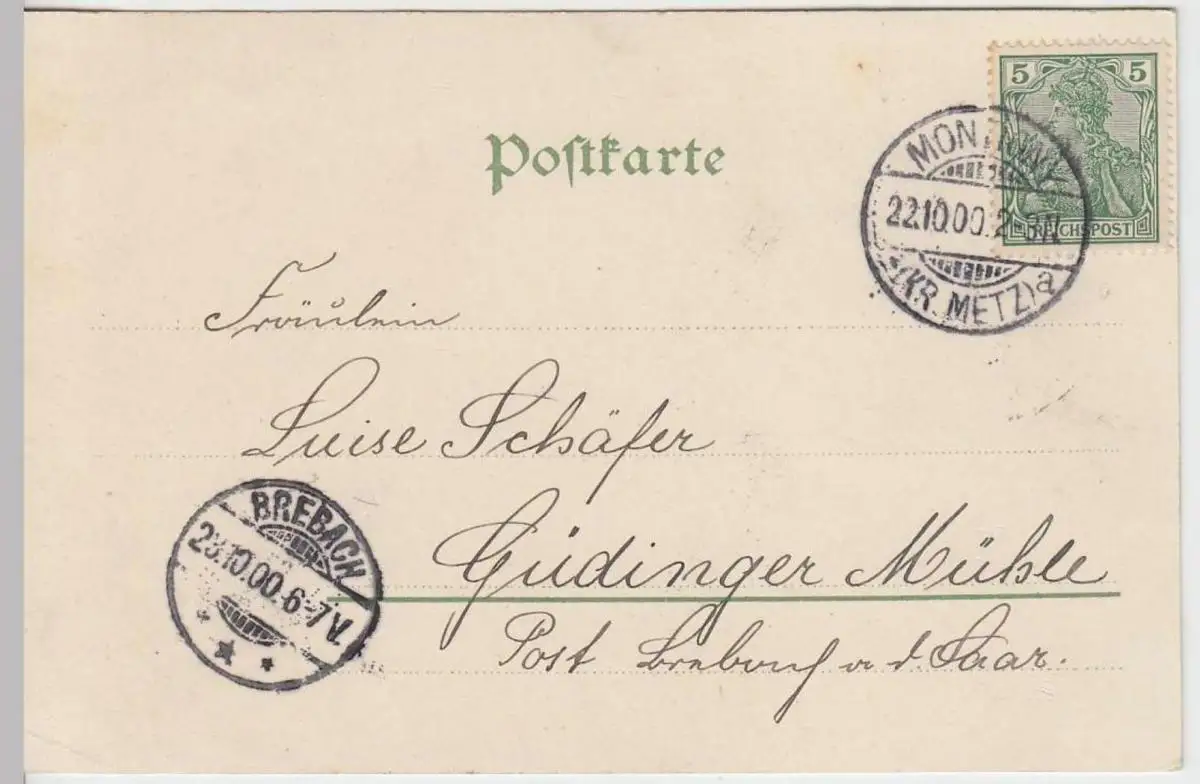 5 5
Postkarte
MONTIGNY
22.10.00.2-3N.
*(KR. METZ)a
REICHSPOST
Fräulein
Luise Schäfer
BREBACH
23.10.00.6-7V.
Güdinger Mühle
Post Brebach a d. Saar.